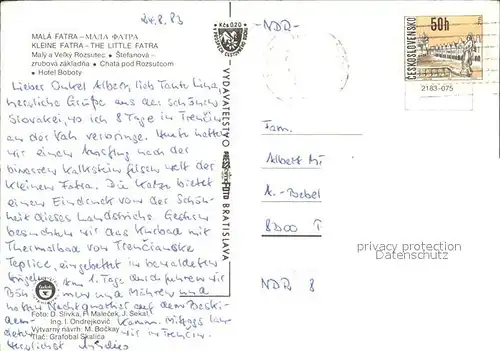 24.8.83
MALÁ FATRA – МАЛА ФАТРА
KLEINE FATRA – THE LITTLE FATRA
Malý a Veľký Rozsutec • Štefanová –
zrubová základňa • Chata pod Rozsutcom
• Hotel Boboty
Lieber Onkel Albert, lieb Tante Lina,
herzliche Grüße aus der schönen
Slovakei, wo ich 8 Tage in Trenčín
an der Vah verbringe. Heute hatten
wir einen Ausflug nach der
bizarren Kalksteinfelsenwelt der
Kleinen Fatra. Die Karte bietet
einen Eindruck von der Schön-
heit dieses Landstrichs. Gestern
besuchten wir das Kurbad mit
Thermalbad von Trenčianske
Teplice, eingebettet in bewaldeten
Hügeln. Am 1. Tage durchfuhren wir
Böhmen und Mähren und
hatten Nachtquartier auf dem Beski-
den-Kamm. Mittags lan-
deten wir in Trenčín.
Herzlichst
Foto: D. Slivka, P. Maleček, J. Sekal,
Ing. I. Ondrejkovič
Výtvarný návrh: M. Bočkay
Tlač: Grafobal Skalica
Kčs 0,20
VYDAVATEĽSTVO
BRATISLAVA
-NDR-
ČESKOSLOVENSKO
50h
2183-075
Fam.
Albert
A.-Bebel
8000
NDR 8
privacy protection
Datenschutz